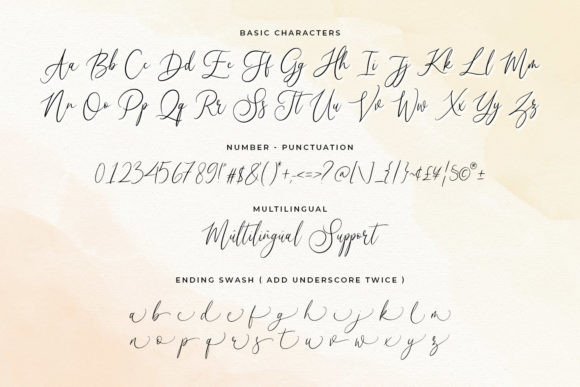 BASIC CHARACTERS
Aa Bb Cc Dd Ee Ff Gg Hh Ii Jj Kk Ll Mm
Nn Oo Pp Qq Rr Ss Tt Uu Vv Ww Xx Yy Zz
NUMBER - PUNCTUATION
0123456789!"#$&()*+,-<=>?@[\]_{|}~¢£¥¦§©®±
MULTILINGUAL
Múltilingüal Support
ENDING SWASH ( ADD UNDERSCORE TWICE )
a b c d e f g h i j k l m
n o p q r s t u v w x y z